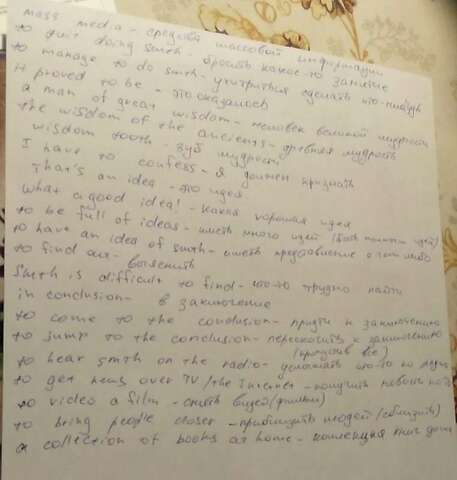 mass media - средства массовой информации
to quit doing smth - бросить какое-то занятие
to manage to do smth - ухитриться сделать что-нибудь
it proved to be - это оказалось
a man of great wisdom - человек великой мудрости
the wisdom of the ancients - древняя мудрость
wisdom tooth - зуб мудрости
I have to confess - я должен признать
That's an idea - это идея
What a good idea! - какая хорошая идея
to be full of ideas - иметь много идей (быть полным идей)
to have an idea of smth - иметь представление о чем-либо
to find out - выяснить
Smth is difficult to find - что-то трудно найти
in conclusion - в заключение
to come to the conclusion - придти к заключению
to jump to the conclusion - перескочить к заключению
(пропустив все)
to hear smth on the radio - услышать что-то по радио
to get news over TV/the Internet - получить новости по
to video a film - снять видео(фильм)
to bring people closer - приблизить людей (сблизить)
a collection of books at home - коллекция книг дома